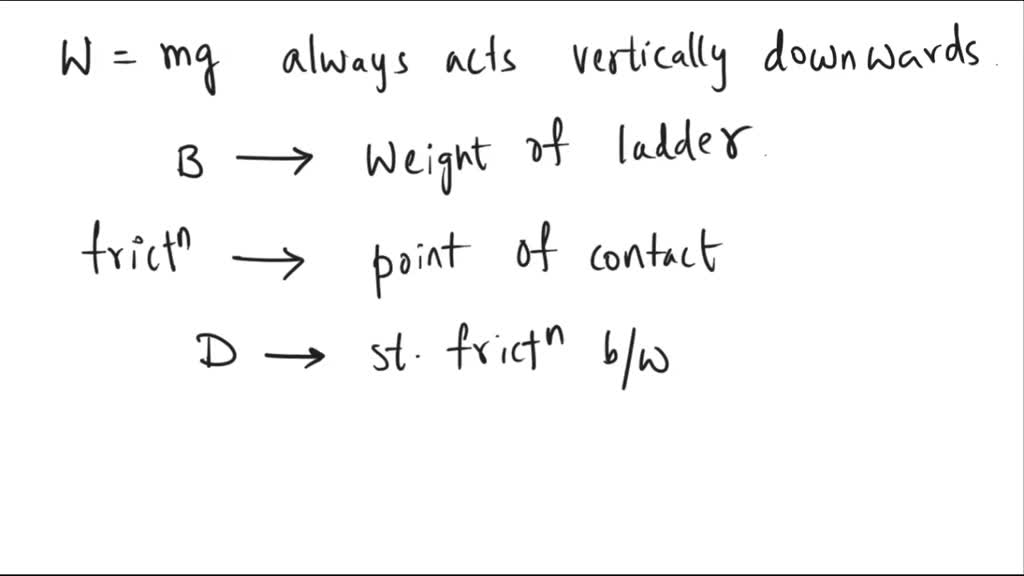 W = mg always acts vertically downwards.
B → Weight of ladder.
frictⁿ → point of contact
D → st. frictⁿ b/w